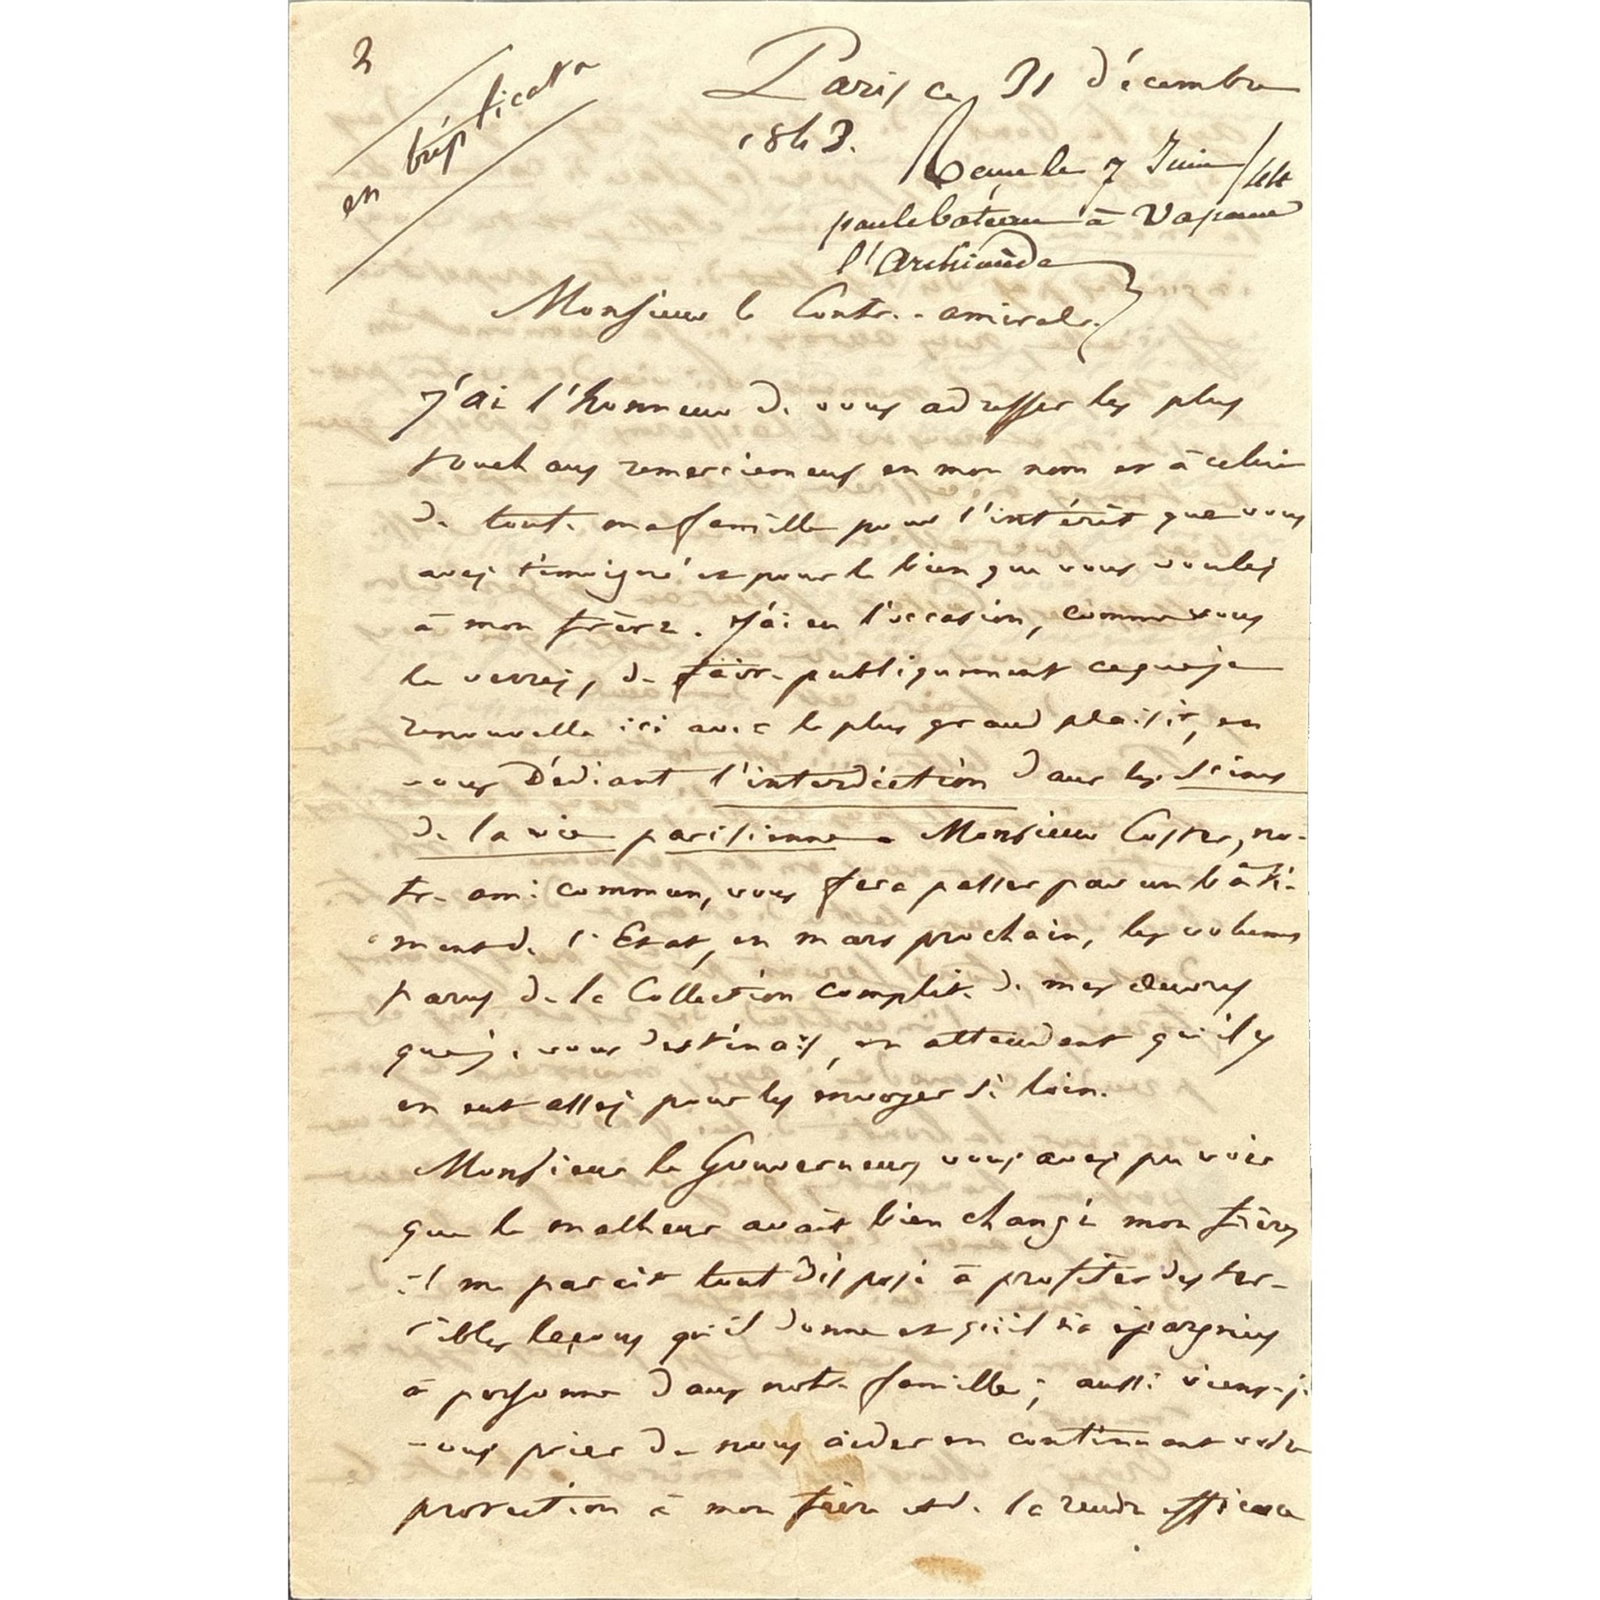 2
en triplicata
Paris ce 31 décembre
1843.
Reçu le 7 Juin /44
par le bateau à Vapeur
l'Archimède
Monsieur le Contre-amiral.
J'ai l'honneur de vous adresser les plus
touchans remerciemens en mon nom et à celui
de toute ma famille pour l'intérêt que vous
avez témoigné et pour le bien que vous voulez
à mon frère. J'ai eu l'occasion, comme vous
le verrez, de faire publiquement ce que je
renouvelle ici avec le plus grand plaisir, en
vous dédiant l'interdiction dans les Scènes
de la vie parisienne. Monsieur Coster, no-
tre ami commun, vous fera passer par un bâti-
ment de l'Etat, en mars prochain, les volumes
parus de la Collection complète de mes œuvres
que je vous destinais, en attendant qu'il y
en eut assez pour les envoyer si loin.
Monsieur le Gouverneur, vous avez pu voir
que le malheur avait bien changé mon frère,
il me paraît tout disposé à profiter des ter-
ribles leçons qu'il donne et qu'il n'a épargnées
à personne dans notre famille; aussi viens-je
vous prier de nous aider en continuant votre
protection à mon frère et de la rendre efficace